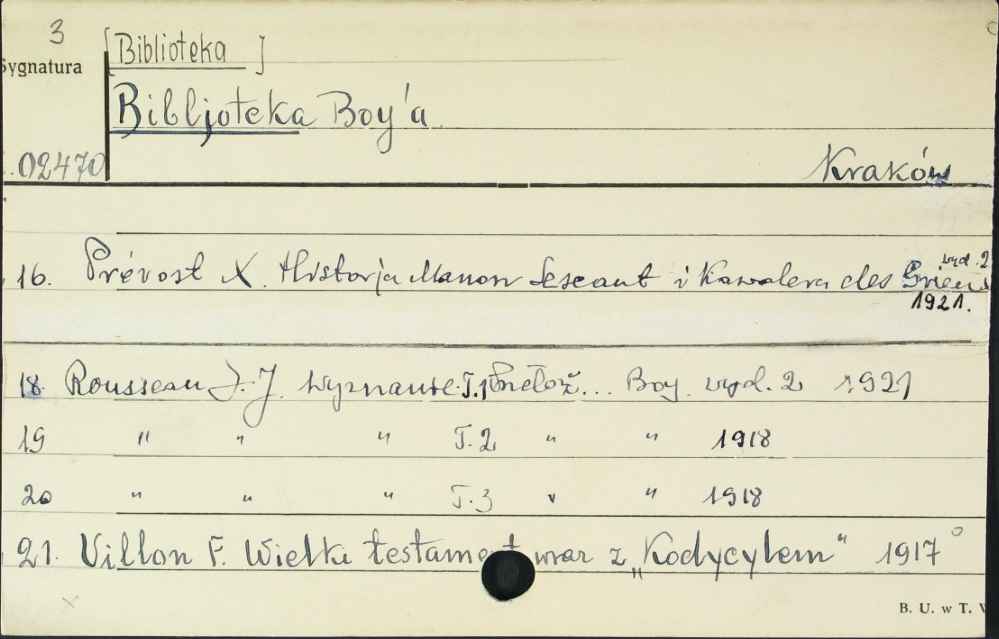 3
[Biblioteka]
Sygnatura
Bibljoteka Boy'a
02470
Kraków
wyd. 2
16. Prévost X. Historja Manon Lescaut i Kawalera des Grieux
1921.
18. Rousseau J. J. Wyznanie T.1 Przełoż... Boy. wyd. 2 1921
19 " " " T. 2 " " 1918
20 " " " T. 3 " " 1918
21. Villon F. Wielki testament wraz z „Kodycylem" 1917
B. U. w T.